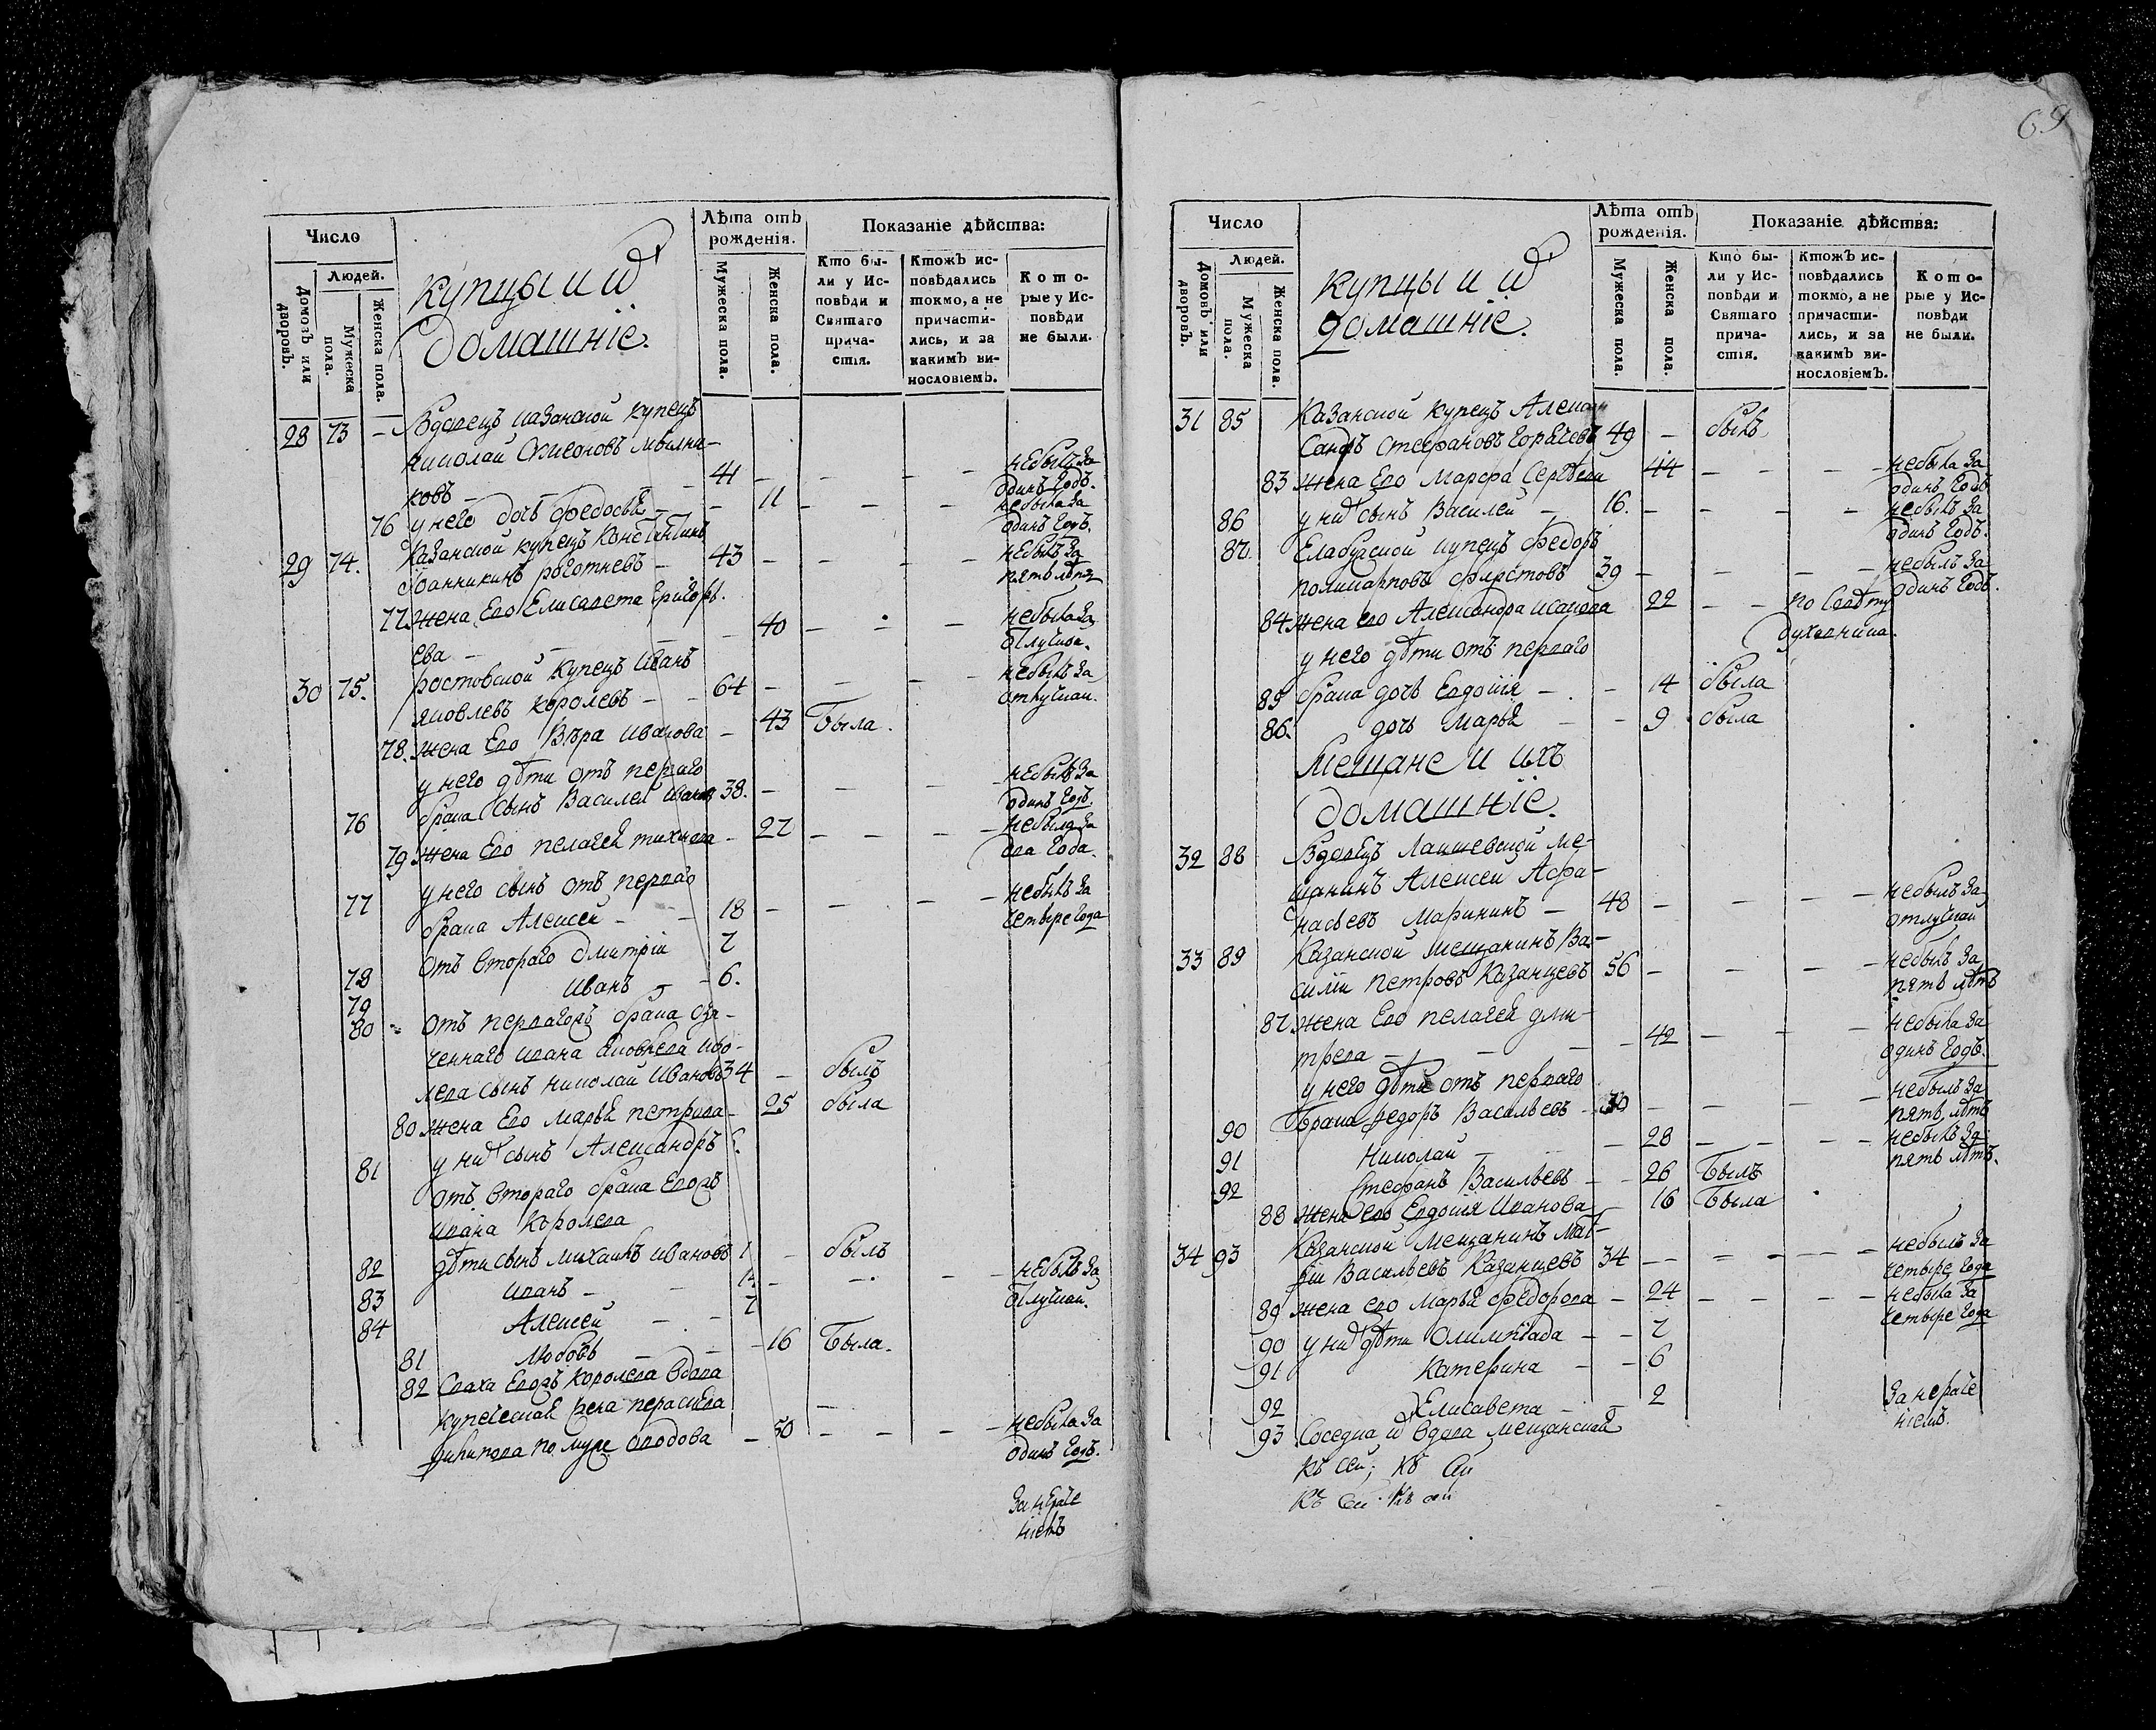 69
Число
Людей.
Домовъ или дворовъ.
Мужеска пола.
Женска пола.
купцы и ихъ
домашніе.
Лѣта отъ рожденія.
Мужеска пола.
Женска пола.
Показаніе дѣйства:
Кто бы-
ли у Ис-
повѣди и
Святаго
прича-
стія.
Ктожъ ис-
повѣдались
токмо, а не
причасти-
лись, и за
какимъ ви-
нословіемъ.
Кото-
рые у Ис-
повѣди
не были.
28 73 Вдовецъ казанской купецъ
николай
ковъ 41 небылъ за одинъ годъ.
76 у него дочь федосья 11 небыла за одинъ годъ.
29 74. Казанской купецъ Константинъ
43 небылъ за пять лѣтъ
77 жена Его Елисавета Григорь
ева 40 небыла за отлучкой.
30 75. ростовской купецъ Иванъ
яковлевъ королевъ 64 небылъ за отлучкой.
78. жена Его Вѣра Иванова 43 была.
у него дѣти отъ перваго
76 брака сынъ Василей Ивановъ 38. небылъ за одинъ годъ.
79 жена Его пелагея 27 небыла за два года.
77 у него сынъ отъ перваго
брака Алексей 18 небылъ за четыре года
78 отъ втораго Дмитрій 7
79 Иванъ 6.
80 отъ перваго брака озна-
ченнаго Ивана Яковлева коро-
лева сынъ николай Ивановъ 34 былъ
80 жена Его Марья петрова 25 была
81 у нихъ сынъ Александръ
отъ втораго брака Егожъ
Ивана королева
82 дѣти сынъ михаилъ Ивановъ былъ
83 Иванъ небылъ за отлучкой.
84 Алексей 7
81 Любовь 16 была.
82 Сваха Егожъ королева вдова
купеческая жена
по муже 50 небыла за одинъ годъ.
за нераче
ніемъ
Число
Людей.
Домовъ или дворовъ.
Мужеска пола.
Женска пола.
купцы и ихъ
домашніе.
Лѣта отъ рожденія.
Мужеска пола.
Женска пола.
Показаніе дѣйства:
Кто бы-
ли у Ис-
повѣди и
Святаго
прича-
стія.
Ктожъ ис-
повѣдались
токмо, а не
причасти-
лись, и за
какимъ ви-
нословіемъ.
Кото-
рые у Ис-
повѣди
не были.
31 85 Казанской купецъ Алек
сандръ Стефановъ Горячевъ 49 былъ
83 жена Его Марфа Сергѣева 44 небыла за одинъ годъ
86 у нихъ сынъ Василей 16. небылъ за одинъ годъ.
87. Елабужской купецъ федоръ
поликарповъ 39 небылъ за одинъ годъ.
84 жена его Александра исакова 22 по совѣту духовника.
у него дѣти отъ перваго
85 брака дочь Евдокія 14 была
86. дочь Марья 9 была
Мещане и ихъ
домашніе.
32 88 Вдовецъ Лаишевской ме-
щанинъ Алексей Афа-
насьевъ Марининъ 48 небылъ за отлучкой
33 89 Казанской мещанинъ Ва-
силій петровъ Казанцевъ 56 небылъ за пять лѣтъ
87 жена Его пелагея дми-
трева 42 небыла за одинъ годъ.
у него дѣти отъ перваго
90 брака федоръ Васильевъ 30 небылъ за пять лѣтъ
91 николай 28 небылъ за пять лѣтъ.
92 Стефанъ Васильевъ 26 былъ
88 жена его Евдокія Иванова 16 была
34 93 Казанской мещанинъ Мат-
вій Васильевъ Казанцевъ 34 небылъ за четыре года
89 жена его марья федорова 24 небыла за четыре года
90 у нихъ дѣти Олимпіада 7
91 катерина 6
92 Елисавета 2
93 Соседка ихъ вдова мещанская
за нераче
ніемъ.